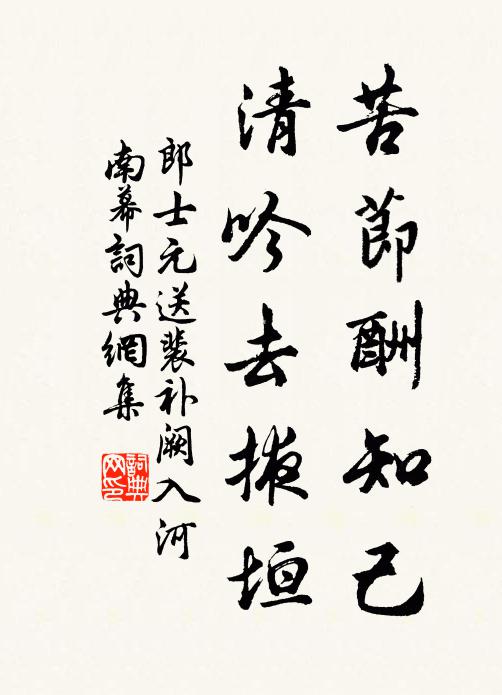 苦節酬知己
清吟去掖垣
郎士元送裴补阙入河
南幕詞典網集
詞典
网印